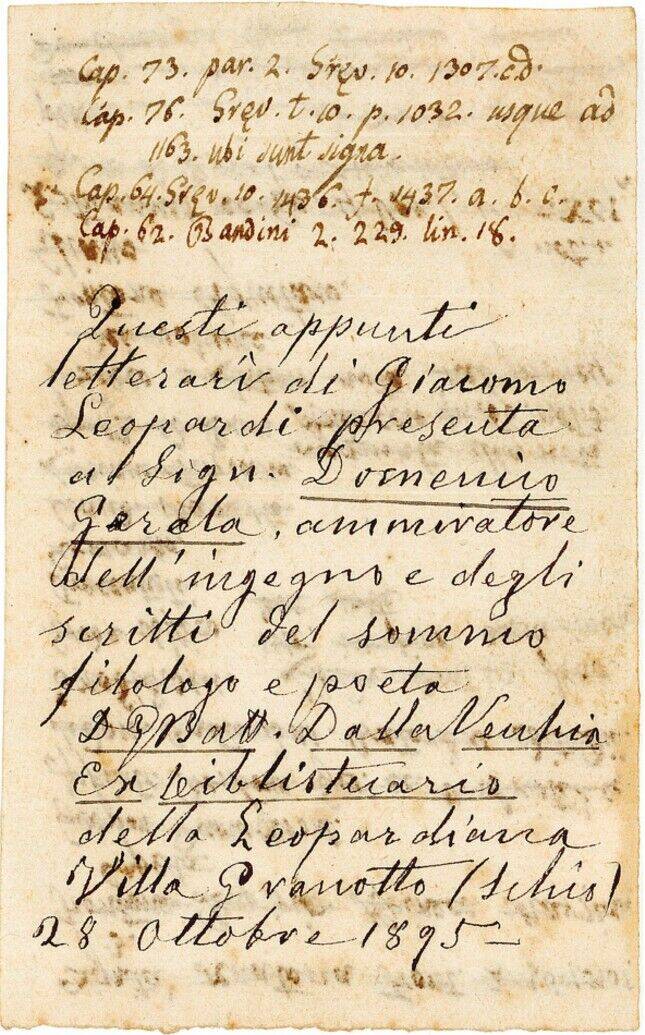 Cap. 73. par. 2. Gręv. 10. 1307. c d.
Cap. 76. Gręv. t. 10. p. 1032. usque ad
1163. ubi sunt signa.
Cap. 64. Gręv. 10. 1436. f. 1437. a. b. c.
Cap. 62. Bandini 2. 229. lin. 18.
Questi appunti
letterarî di Giacomo
Leopardi presenta
al Sign. Domenico
Gerola, ammiratore
dell'ingegno e degli
scritti del sommo
filologo e poeta
D G Batt. Dalla Vecchia
Ex
della Leopardiana
Villa Granotto (Schio)
28 Ottobre 1895 –